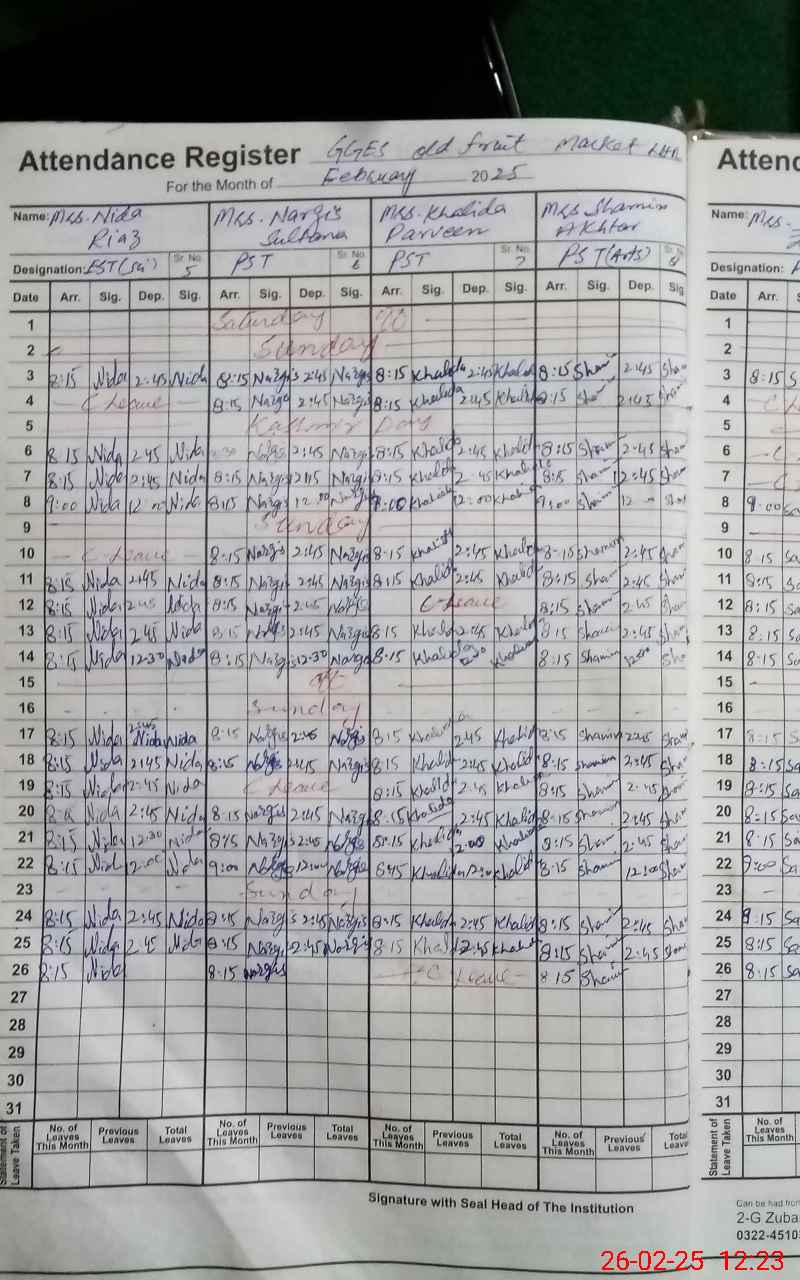 Attendance Register GGES old fruit Market LHR
For the Month of February 2025
Name: Mrs. Nida Riaz Mrs. Nargis Sultana Mrs. Khalida Parveen Mrs Shamim Akhtar
Designation: EST(Sci) Sr. No. 5 PST Sr. No. 6 PST Sr. No. 7 PST(Arts) Sr. No. 8
Date Arr. Sig. Dep. Sig. Arr. Sig. Dep. Sig. Arr. Sig. Dep. Sig. Arr. Sig. Dep. Sig
1 Saturday
2 Sunday
3 8:15 Nida 2:45 Nida 8:15 Nargis 2:45 Nargis 8:15 Khalida 2:45 Khalida 8:15 Sham 2:45 Sham
4 C Leave 8:15 Nargis 2:45 Nargis 8:15 Khalida 2:45 Khalida 8:15 Sham 2:45 Sham
5 Kashmir Day
6 8 15 Nida 2 45 Nida Nargis 2:45 Nargis 8:15 Khalida 2:45 Khalid 8:15 Sham 2:45 Sham
7 8:15 Nida 2:45 Nida 8:15 Nargis Nargis 8:15 Khalida 2:45 Khalida 8:15 Sham 2:45 Sham
8 9:00 Nida 12 00 Nida 8:15 Nargis 12:00 Nargis Khalida 12:00 Khalida 9:00 Sham 12 Sham
9 Sunday
10 C Leave 8:15 Nargis 2:45 Nargis 8:15 Khalida 2:45 Khalid 8:15 Shamim 2:45 Sham
11 8:15 Nida 2:45 Nida 8:15 Nargis 2:45 Nargis 8:15 Khalida 2:45 Khalid 8:15 Sham 2:45 Sham
12 8:15 Nida 2:45 Nida 8:15 Nargis 2:45 Nargis C Leave 8:15 Sham 2:45 Sham
13 8:15 Nida 2:45 Nida 8:15 Nargis 2:45 Nargis 8:15 Khalida 2:45 Khalid 8:15 Sham 2:45 Sham
14 8:15 Nida 12:30 Nida 8:15 Nargis 12:30 Nargis 8:15 Khalida Khalida 8:15 Shamim Sham
15
16 Sunday
17 8:15 Nida 2:45 Nida Nida 8:15 Nargis 2:45 Nargis 8:15 Khalida 2:45 Khalid 8:15 Shamim 2:45 Sham
18 8:15 Nida 2:45 Nida 8:15 Nargis 2:45 Nargis 8:15 Khalid 2:45 Khalid 8:15 Shamim 2:45 Sham
19 8:15 Nida 2:45 Nida C Leave 8:15 Khalid 2:45 Khalid 8:15 Sham 2:45 Sham
20 Nida 2:45 Nida 8:15 Nargis 2:45 Nargis 8:15 Khalida 2:45 Khalid 8:15 Shamim 2:45 Sham
21 8:15 Nida 12:30 Nida 8:15 Nargis 2:45 Nargis 8:15 Khalida 12:00 Khalida 8:15 Sham 2:45 Sham
22 8:15 Nida Nida 9:00 Nargis 12:00 Nargis 8:45 Khalida 12:00 Khalid 8:15 Shamim 12:00 Sham
23 Sunday
24 8:15 Nida 2:45 Nida 8:15 Nargis 2:45 Nargis 8:15 Khalida 2:45 Khalid 8:15 Sham 2:45 Sham
25 8:15 Nida 2 45 Nida 8:15 Nargis 2:45 Nargis 8:15 Khalid 2:45 Khalid 8:15 Sham 2:45 Sham
26 8:15 Nida 8:15 Nargis C Leave 8 15 Sham
27
28
29
30
31
Statement of Leave Taken No. of Leaves This Month Previous Leaves Total Leaves No. of Leaves This Month Previous Leaves Total Leaves No. of Leaves This Month Previous Leaves Total Leaves No. of Leaves This Month Previous Leaves Total
Signature with Seal Head of The Institution
Attend
Name: Mrs.
Designation:
Date Arr. S
1
2
3 8:15 S
4
5
6
7
8 9:00 Sa
9
10 8 15 Sa
11 8:15 Sa
12 8:15 Sa
13 8.15 Sa
14 8.15 Sa
15
16
17 8:15 S
18 8:15 Sa
19 8:15 Sa
20 8:15 Sa
21 8.15 Sa
22 9:00 Sa
23
24 8:15 Sa
25 8:15 Sa
26 8.15 Sa
27
28
29
30
31
Statement of Leave Taken No. of Leaves This Month
Can be had from
2-G Zuba
0322-4510
26-02-25 12.23